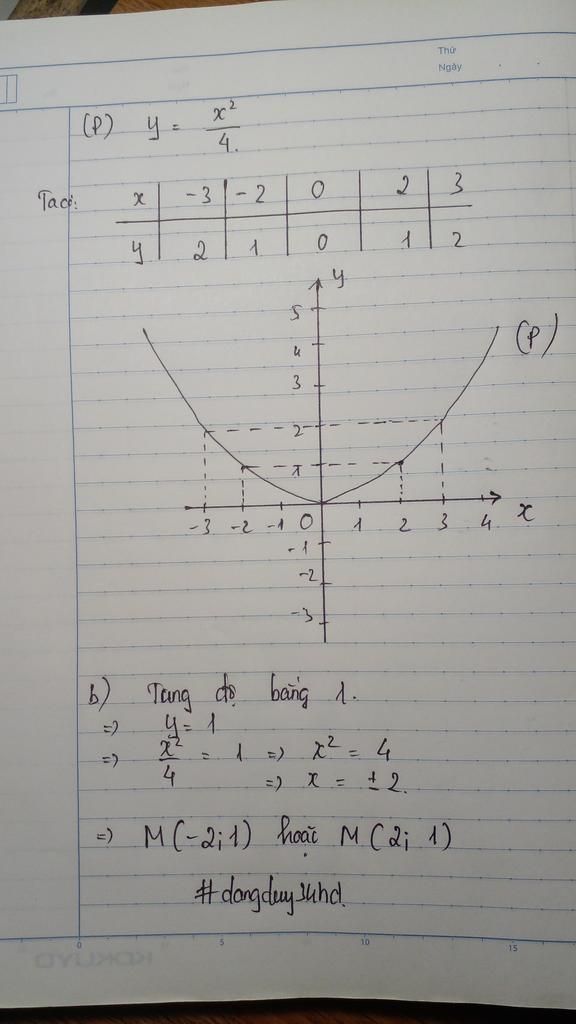 Thứ
Ngày
(P) y = x²/4.
Ta có: x | -3 | -2 | 0 | 2 | 3
y | 2 | 1 | 0 | 1 | 2
y
5
4
3
2
1
(P)
-3 -2 -1 0 1 2 3 4 x
-1
-2
-3
b) Tung độ bằng 1.
=> y = 1
=> x²/4 = 1 => x² = 4
=> x = ±2.
=> M(-2; 1) hoặc M(2; 1)
#dangduy34hd.
0 5 10 15
KOKUYO